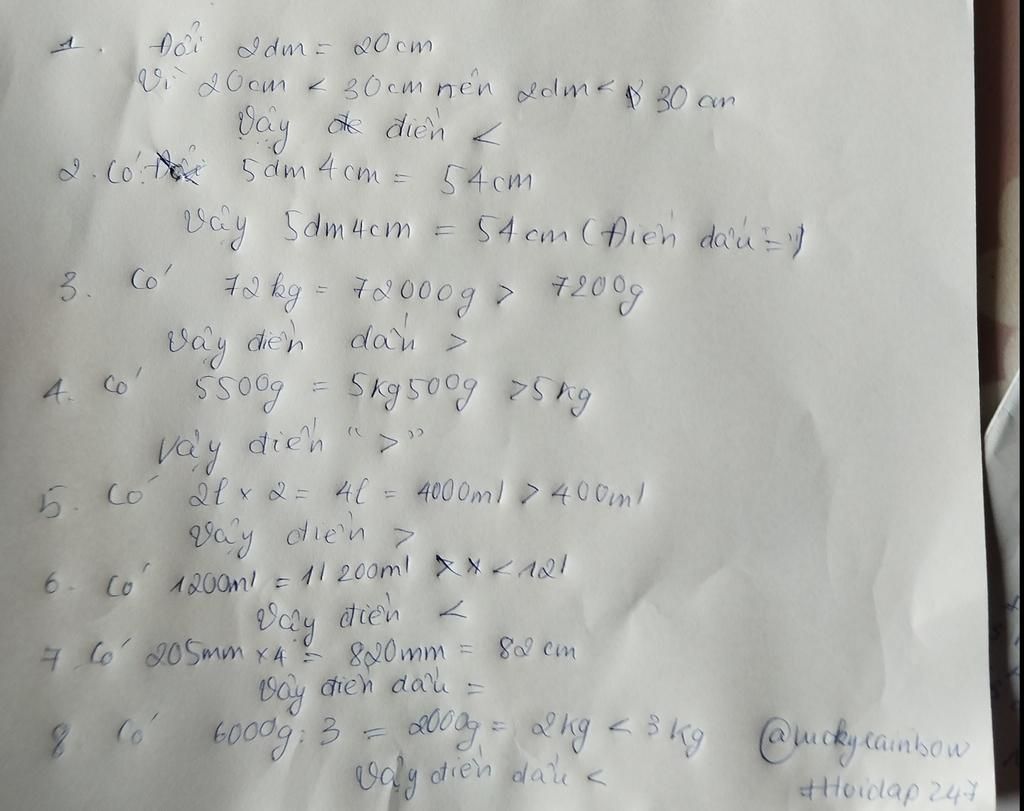 1. Đổi 2dm = 20cm
Vì 20cm < 30cm nên 2dm < 30cm
Vậy điền <
2. Có: 5dm 4cm = 54cm
Vậy 5dm4cm = 54cm (Điền dấu "=")
3. Có 72kg = 72000g > 7200g
Vậy điền dấu >
4. Có 5500g = 5kg500g >5kg
Vậy điền ">"
5. Có 2l x 2 = 4l = 4000ml > 400ml
Vậy điền >
6. Có 1200ml = 1l 200ml < 12l
Vậy điền <
7 Có 205mm x4 = 820mm = 82cm
Vậy điền dấu =
8 Có 6000g : 3 = 2000g = 2kg < 3kg
Vậy điền dấu <
@luckyrainbow
#Hoidap247